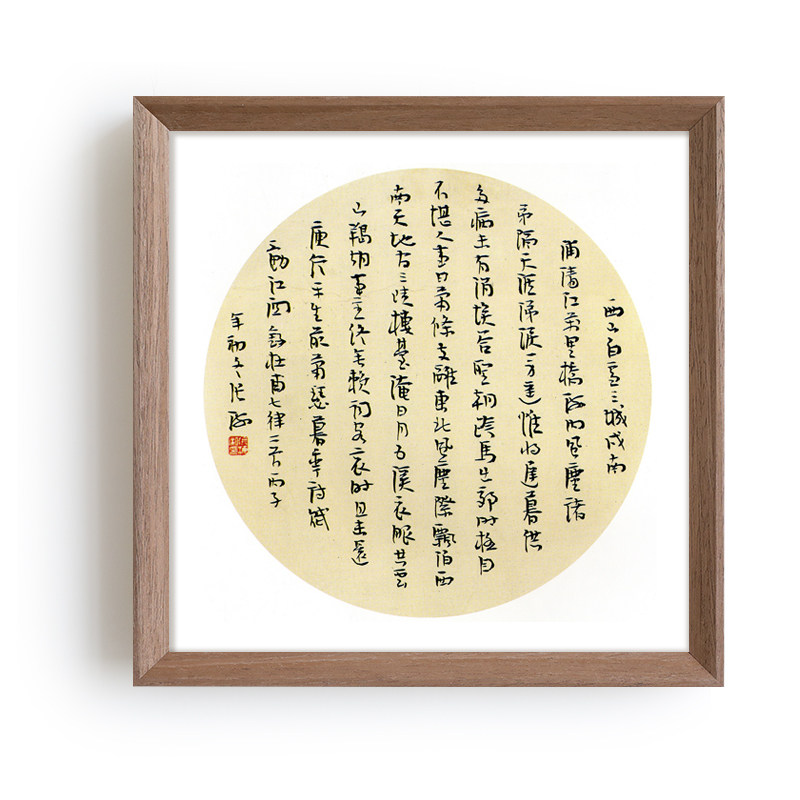 西山白雪三城戍南
浦清江萬里橋海内風塵諸
弟隔天涯涕淚一身遙惟將遲暮供
多病未有涓埃答聖朝跨馬出郊時極目
不堪人事日蕭條支離東北風塵際飄泊西
南天地間三峽樓臺淹日月五溪衣服共雲
山羯胡事主終無賴詞客哀時且未還
庾信平生最蕭瑟暮年詩賦
動江關錄杜甫七律二首丙子
年初冬張海